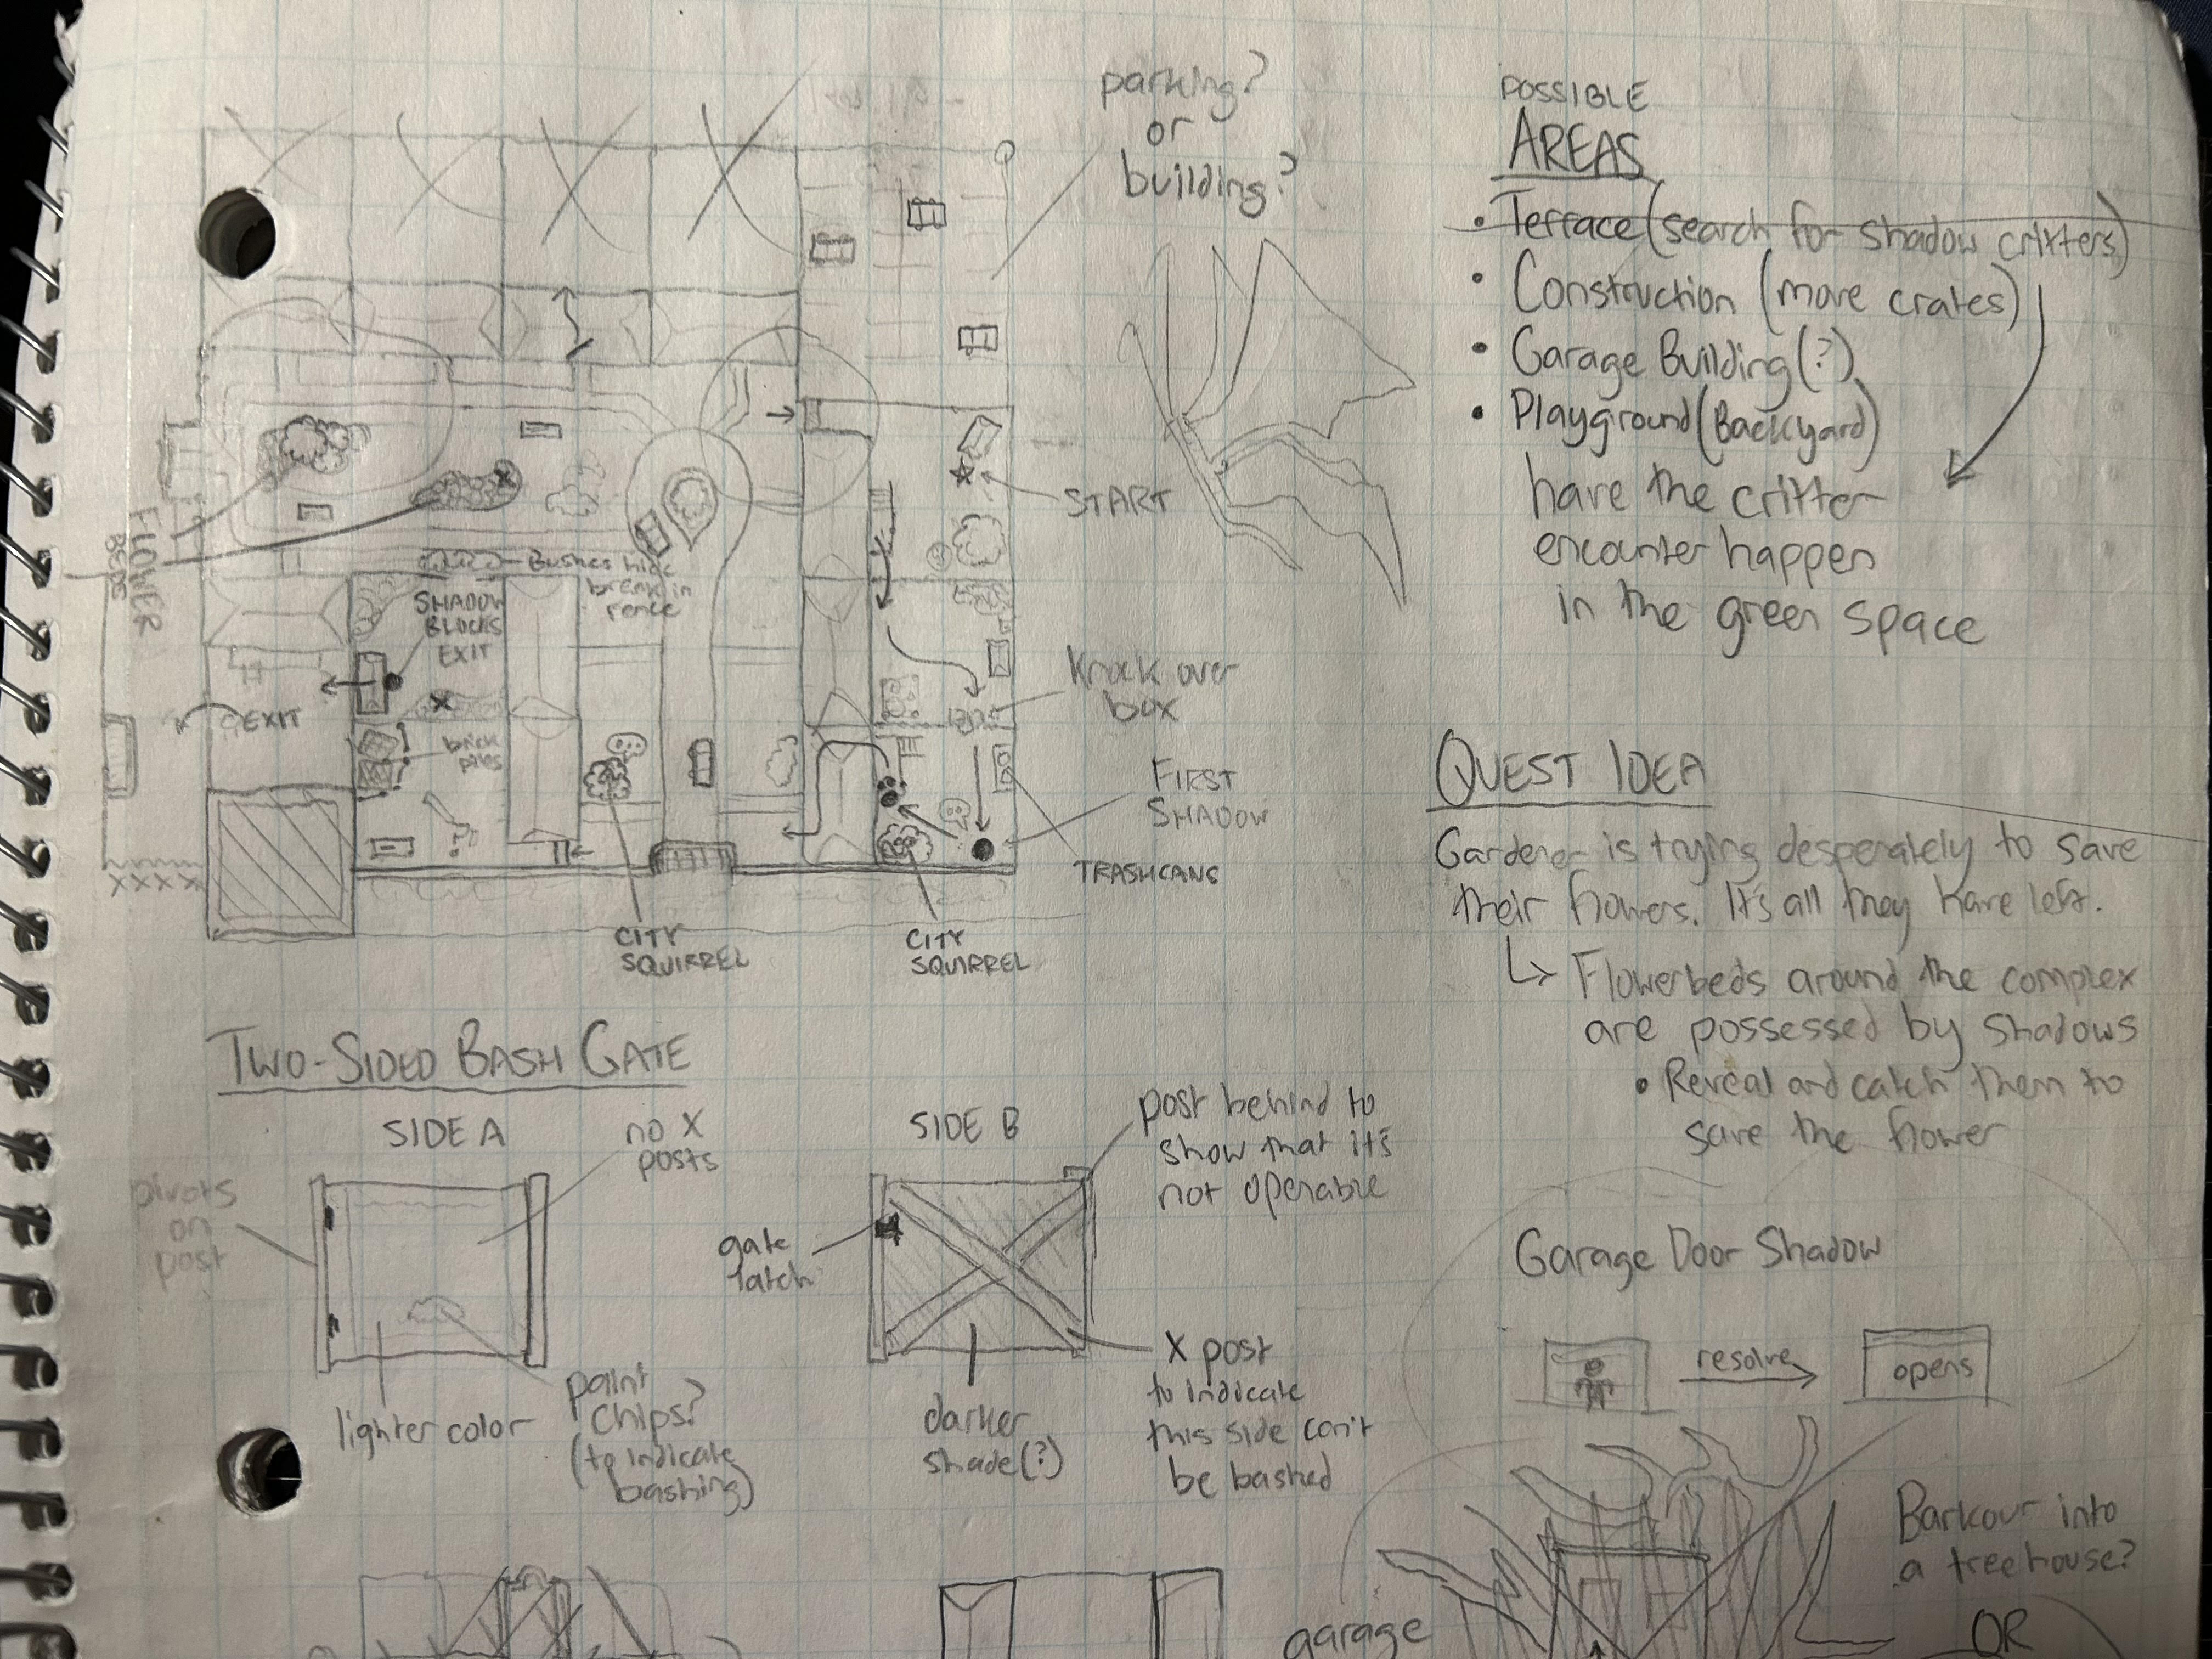 parking?
or
building?
START
FLOWER
BEDS
Bushes hide
break in
fence
SHADOW
BLOCKS
EXIT
EXIT
brick
piles
Knock over
box
FIRST
SHADOW
TRASHCANS
CITY
SQUIRREL
CITY
SQUIRREL
XXXX
POSSIBLE
AREAS
• Terrace (search for shadow critters)
• Construction (move crates)
• Garage Building (?)
• Playground (Backyard)
have the critter
encounter happen
in the green space
QUEST IDEA
Gardener is trying desperately to save
their flowers. It's all they have left.
↳ Flowerbeds around the complex
are possessed by shadows
• Reveal and catch them to
save the flower
TWO-SIDED BASH GATE
SIDE A
no X
posts
pivots
on
post
lighter color
paint
chips?
(to indicate
bashing)
SIDE B
post behind to
show that it's
not operable
gate
latch
darker
shade(?)
X post
to indicate
this side can't
be bashed
Garage Door Shadow
resolve
opens
Barkour into
a treehouse?
OR
garage